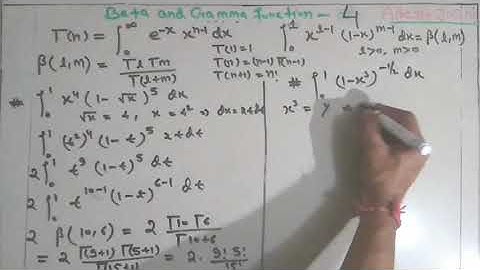 Beta and Gamma Function - 4
Γ(n) = ∫₀^∞ e^-x x^n-1 dx
∫₀¹ x^l-1 (1-x)^m-1 dx = β(l,m)
l>0, m>0
β(l,m) = Γl Γm / Γ(l+m)
Γ(1) = 1
Γ(n) = (n-1) Γ(n-1)
Γ(n+1) = n!
* ∫₀¹ x⁴ (1-√x)⁵ dx
√x = t, x = t² ⇒ dx = 2tdt
∫₀¹ (t²)⁴ (1-t)⁵ 2tdt
2∫₀¹ t⁹ (1-t)⁵ dt
2∫₀¹ t^10-1 (1-t)^6-1 dt
2 β(10,6) = 2 Γ10 Γ6 / Γ10+6
= 2 Γ(9+1) Γ(5+1) / Γ(15+1) = 2. 9! 5! / 15!
* ∫₀¹ (1-x³)^-1/2 dx
x³ = y